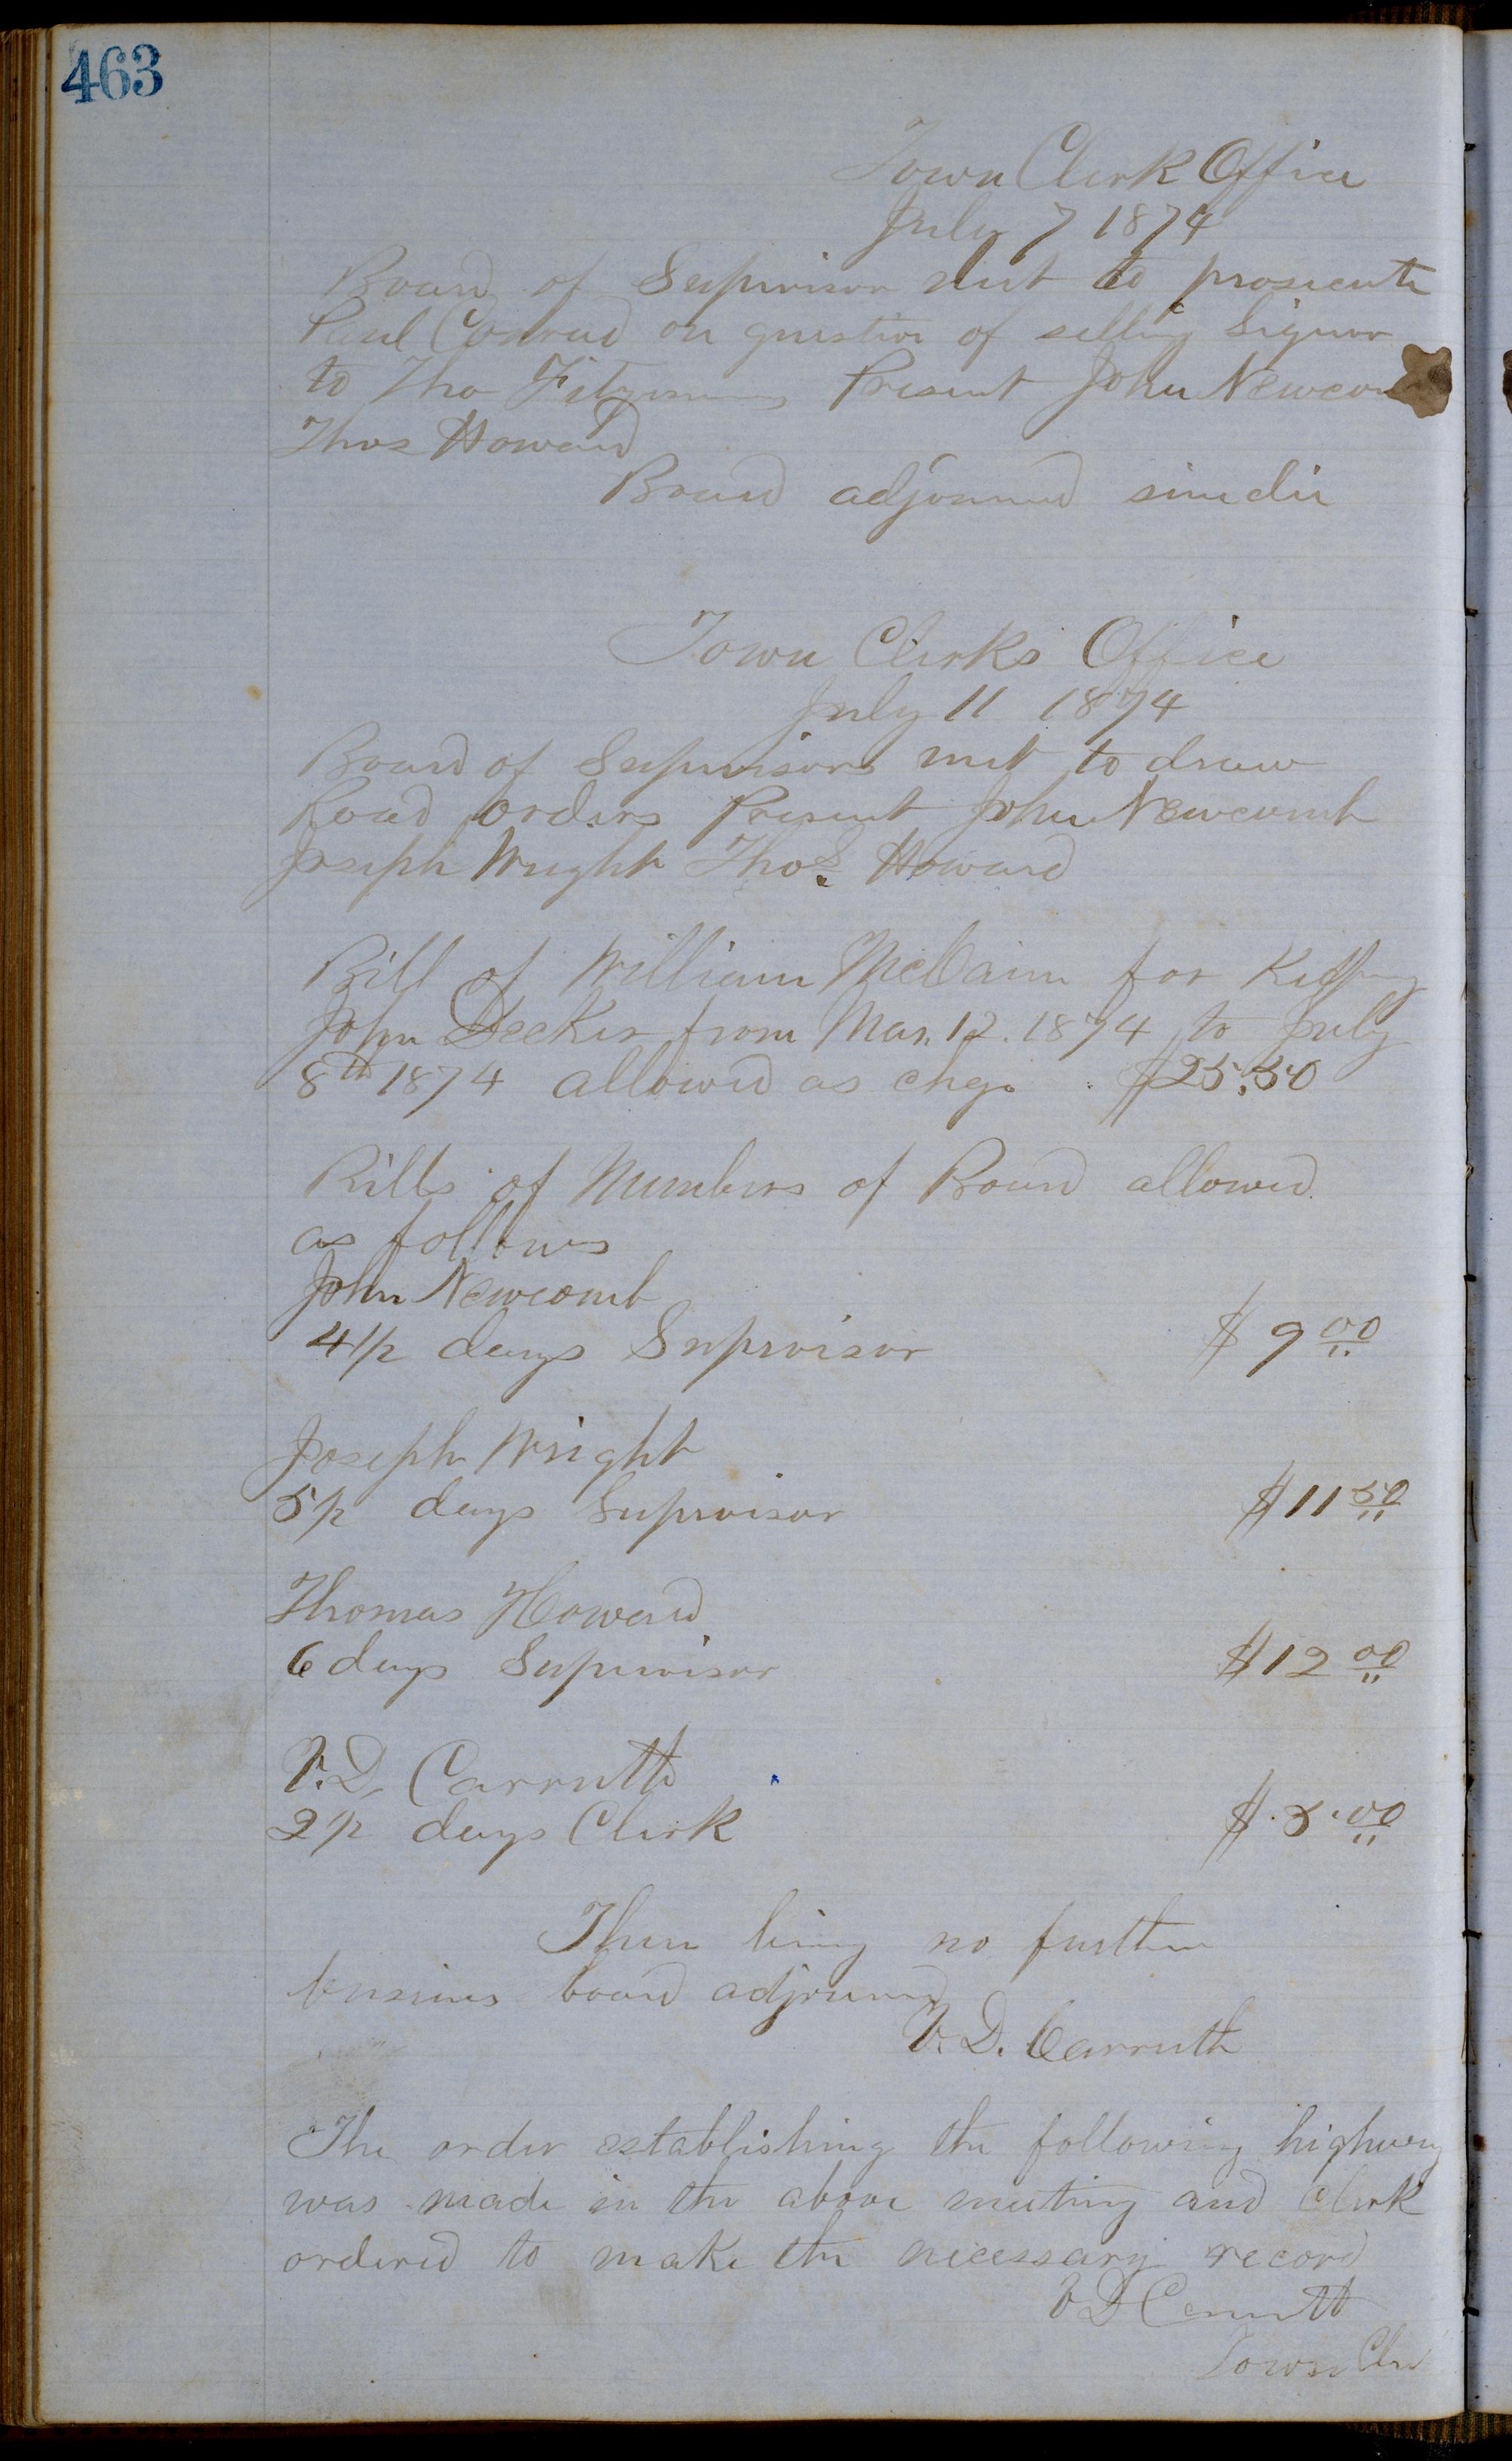 463
Town Clerk Office
July 7 1874
Board of Supervisor met to prosecute
Paul Conrad on question of selling Liquor
to Tho Present John Newcom
Thos Howard
Board adjourned sine die
Town Clerks Office
July 11 1874
Board of Supervisors met to draw
Road orders Present John Newcomb
Joseph Wright Thos. Howard
Bill of William McCaim for Keeping
John Decker from Mar. 12. 1874 to July
8th 1874 allowed as chg. $25.50
Bills of Members of Board allowed
as follows
John Newcomb
4 1/2 days Supervisor $ 9 00
Joseph Wright
5 1/2 days Supervisor $ 11 50
Thomas Howard
6 days Supervisor $ 12 00
V.D. Carruth
2 1/2 days Clerk $ 5.00
There being no further
business board adjourned
V. D. Carruth
The order establishing the following highway
was made in the above meeting and Clerk
ordered to make the necessary record
V D Carruth
Town Clk